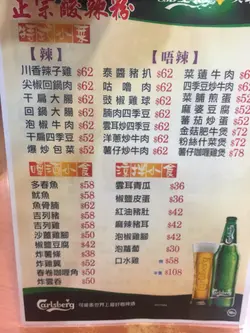 正宗酸辣粉
【辣】
川香辣子雞 $62
尖椒回鍋肉 $62
干扁大腸 $62
回鍋大腸 $62
泡椒牛肉 $62
干扁四季豆 $62
爆炒包菜 $52
【唔辣】
泰醬豬扒 $62
咕嚕肉 $62
豉椒雞球 $62
腩肉四季豆 $62
雲耳炒四季豆 $62
洋蔥炒牛肉 $62
薯仔炒牛肉 $62
菜薳牛肉
四季豆炒牛肉
菜脯煎蛋 $52
麻婆豆腐 $52
蕃茄炒蛋 $52
金菇肥牛煲 $78
粉絲什菜煲 $72
薯仔咖喱雞煲 $78
多春魚 $58
魷魚 $58
魚骨腩 $62
吉列豬 $58
吉列雞 $58
沙薑雞腳 $50
椒鹽豆腐 $42
炸薯條 $38
炸雲吞 $50
雲耳青瓜 $36
椒鹽皮蛋 $36
紅油豬肚 $42
麻辣豬耳 $42
泡椒雞腳 $42
泡蘿蔔 $30
口水雞 $58
$108
Carlsberg
可能是世界上最好的啤酒